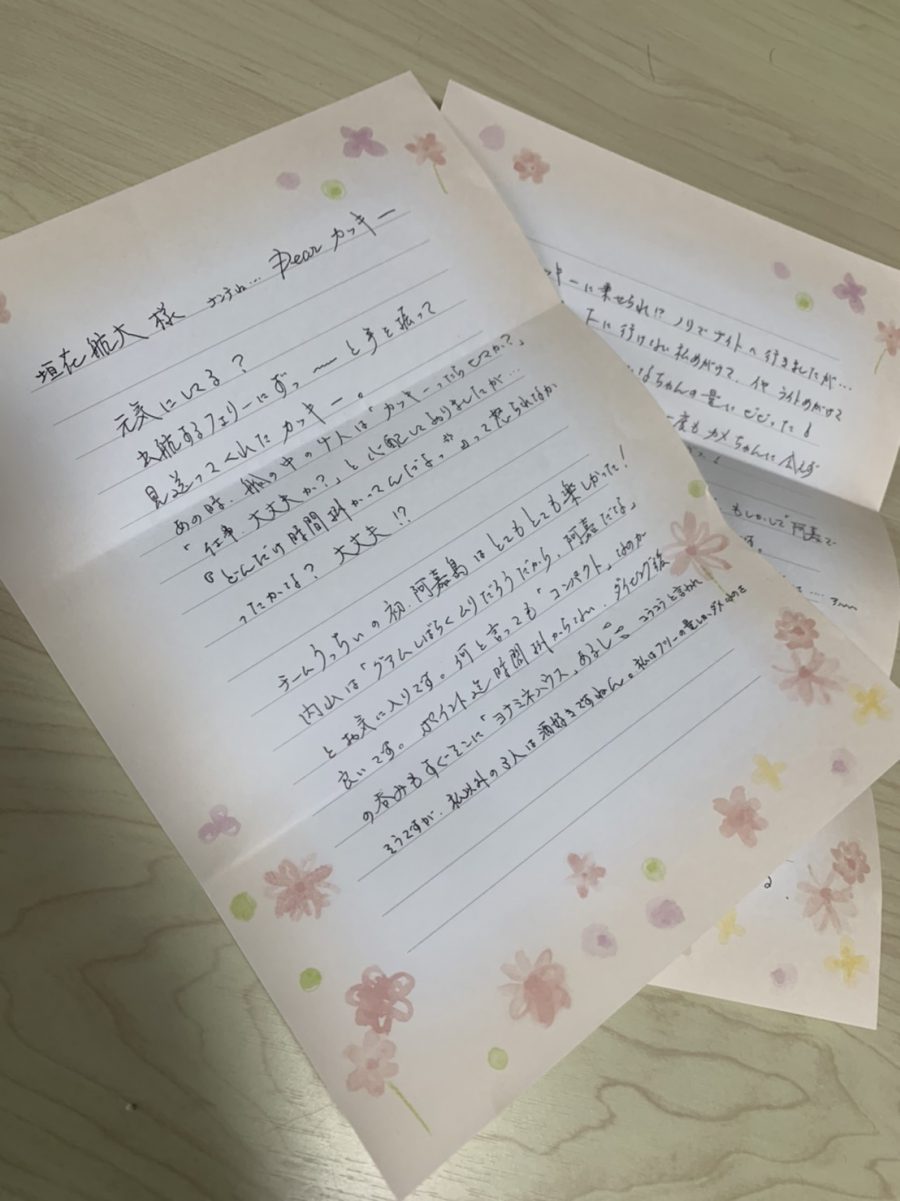 垣花航大様 ナンテね… Dear カッキー
元気にしてる?
出航するフェリーにずっ〜〜と手を振って
見送ってくれたカッキー。
あの時、船の中の4人は「カッキーったら
「仕事、大丈夫か?」と心配しておりましたが…
『どんだけ時間掛かってんだよっ』って怒られなか
ったかな? 大丈夫!?
チームうっちぃの初、阿嘉島はとてもとても楽しかった!
内山は「グアムしばらくムリだろうだから、阿嘉だな」
とお気に入りです。何と言っても「コンパクト」なのが
良いです。ポイント迄時間掛からない、ダイビング後
の呑みもすぐそこに「ヨナミネハウス」あるし
そうですが、私以外の3人は酒好きですもん。私はフリーの
キーに乗せられ!? ノリでナイトへ行きましたが…
トに行けない私めがけて、イヤ ライトめがけて
ちゃんの量にビビったよ
度もカメちゃんに会えず
もしかして阿嘉で
す。